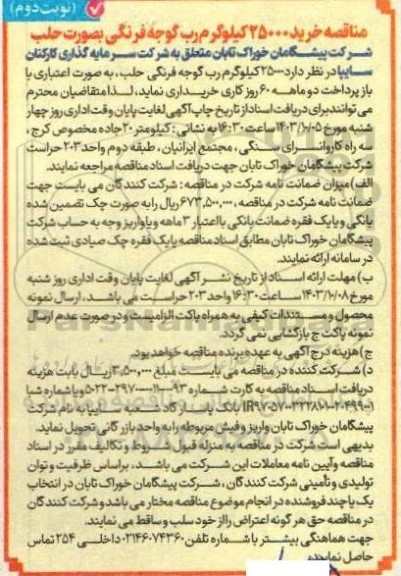 (نوبت دوم)
مناقصه خرید ۲۵۰۰۰ کیلوگرم رب گوجه فرنگی بصورت حلب
شرکت پیشگامان خوراک تابان متعلق به شرکت سرمایه گذاری کارکنان
سایپا در نظر دارد ۲۵۰۰۰ کیلوگرم رب گوجه فرنگی حلب ، به صورت اعتباری با
باز پرداخت دو ماهه ۶۰ روز کاری خریداری نماید، لذا متقاضیان محترم
می توانند برای دریافت اسناد از تاریخ چاپ آگهی لغایت پایان وقت اداری روز چهار
شنبه مورخ ۱۴۰۳/۱۰/۰۵ ساعت ۱۶:۳۰ به نشانی : کیلومتر ۲۰ جاده مخصوص کرج ،
سه راه کاروانسرای سنگی ، مجتمع ایرانیان ، طبقه دوم واحد ۲۰۳ حراست
شرکت پیشگامان خوراک تابان جهت دریافت اسناد مناقصه مراجعه نمایند.
الف) میزان ضمانت نامه شرکت در مناقصه : شرکت کنندگان می بایست جهت
ضمانت نامه شرکت در مناقصه ، ۶۷۳,۵۰۰,۰۰۰ ریال را به صورت چک تضمین شده
بانکی و یا یک فقره ضمانت بانکی با اعتبار ۳ ماهه و یا واریز وجه به حساب شرکت
پیشگامان خوراک تابان مطابق اسناد مناقصه یا یک فقره چک صیادی ثبت شده
در سامانه ارائه نمایند.
ب) مهلت ارائه اسناد از تاریخ نشر آگهی لغایت پایان وقت اداری روز شنبه
مورخ ۱۴۰۳/۱۰/۰۸ ساعت ۱۶:۳۰ واحد ۲۰۳ حراست می باشد ، ارسال نمونه
محصول و مستندات کیفی به همراه پاکت الزامیست و در صورت عدم ارسال
نمونه پاکت ج بازگشایی نمی گردد.
ج) هزینه درج آگهی به عهده برنده مناقصه خواهد بود.
د) شرکت کننده در مناقصه می بایست مبلغ ۳,۵۰۰,۰۰۰ ریال بابت هزینه
دریافت اسناد مناقصه به کارت شماره و یا شماره شبا
بانک پاسارگاد شعبه سایپا به نام شرکت
پیشگامان خوراک تابان واریز و فیش مربوطه را به واحد بازرگانی تحویل نماید.
بدیهی است شرکت در مناقصه به منزله قبول شروط و تکالیف مقرر در اسناد
مناقصه و آیین نامه معاملات این شرکت می باشد، براساس ظرفیت و توان
تولیدی و تأمینی شرکت کنندگان ، شرکت پیشگامان خوراک تابان در انتخاب
یک یا چند فروشنده در انجام موضوع مناقصه مختار می باشد و شرکت کنندگان
در مناقصه حق هر گونه اعتراض را از خود سلب و ساقط می نمایند.
جهت هماهنگی بیشتر با شماره تلفن ۰۲۱۴۶۰۷۴۳۶۰ داخلی ۲۵۴ تماس
حاصل نمایید